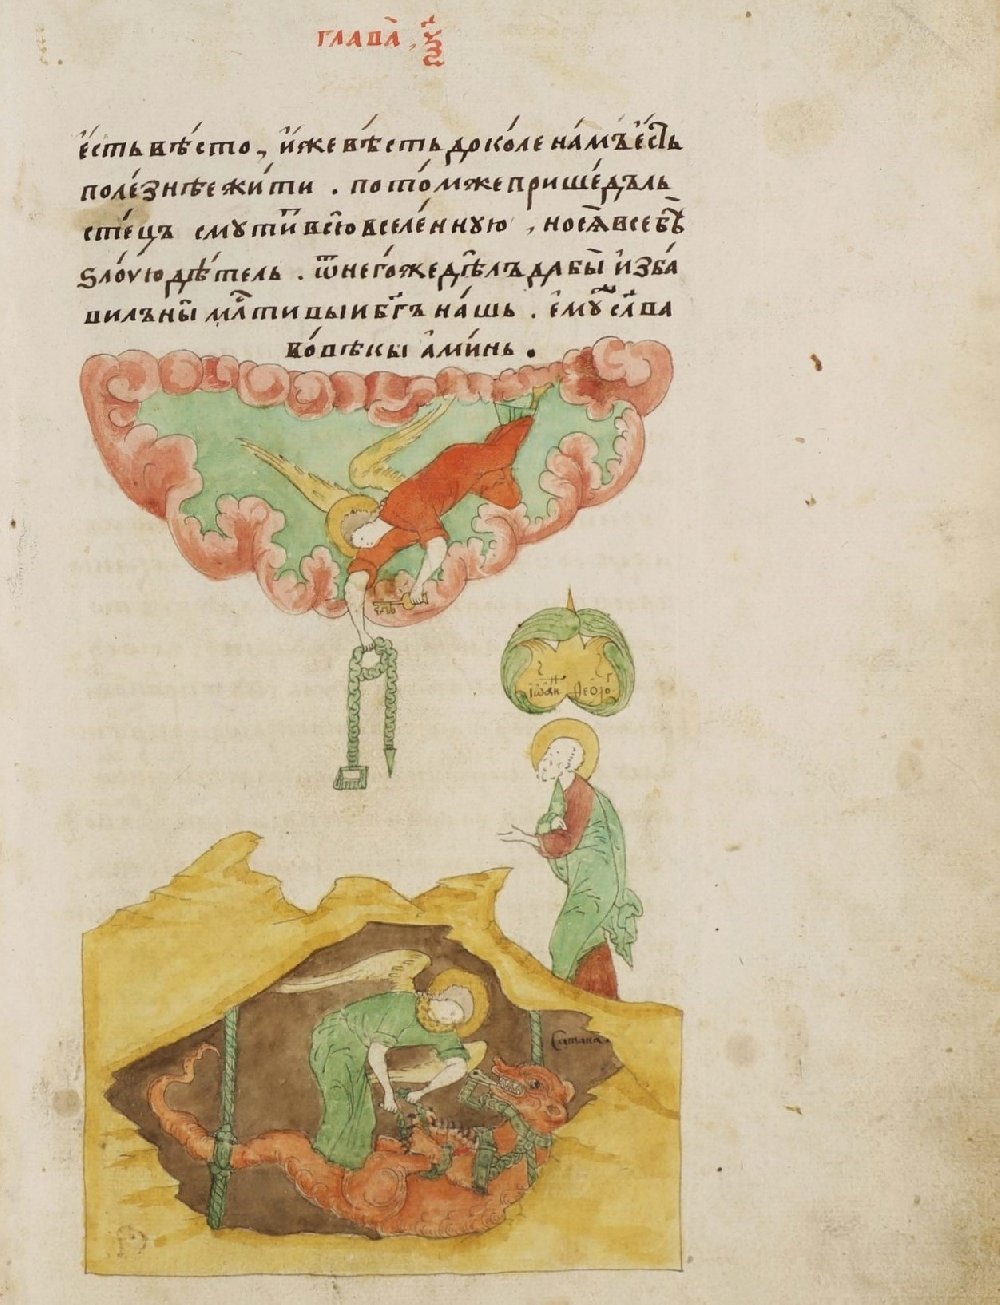 глава̀, ѯ҃
є҆́сть вѣ́сто, и҆́же вѣ́сть доко́ле на́мъ є҆́сть
поле́знѣе жи́ти . пото́м же прише́дъ ль
сте́цъ смути́ти всю̀ вселе́нную , нося̀ все бѣ́
ѕло́ую дѣ́тель . ѿ него́же дг҃лъ дабы̀ и҆зба
вилъ ны̀ млт҃ивыи бг҃ъ на́шь . є҆мꙋ̀ сла́ва
во́вѣкы а҆ми́нь .
і҆ѡ́ан ѳеоло
Сатана